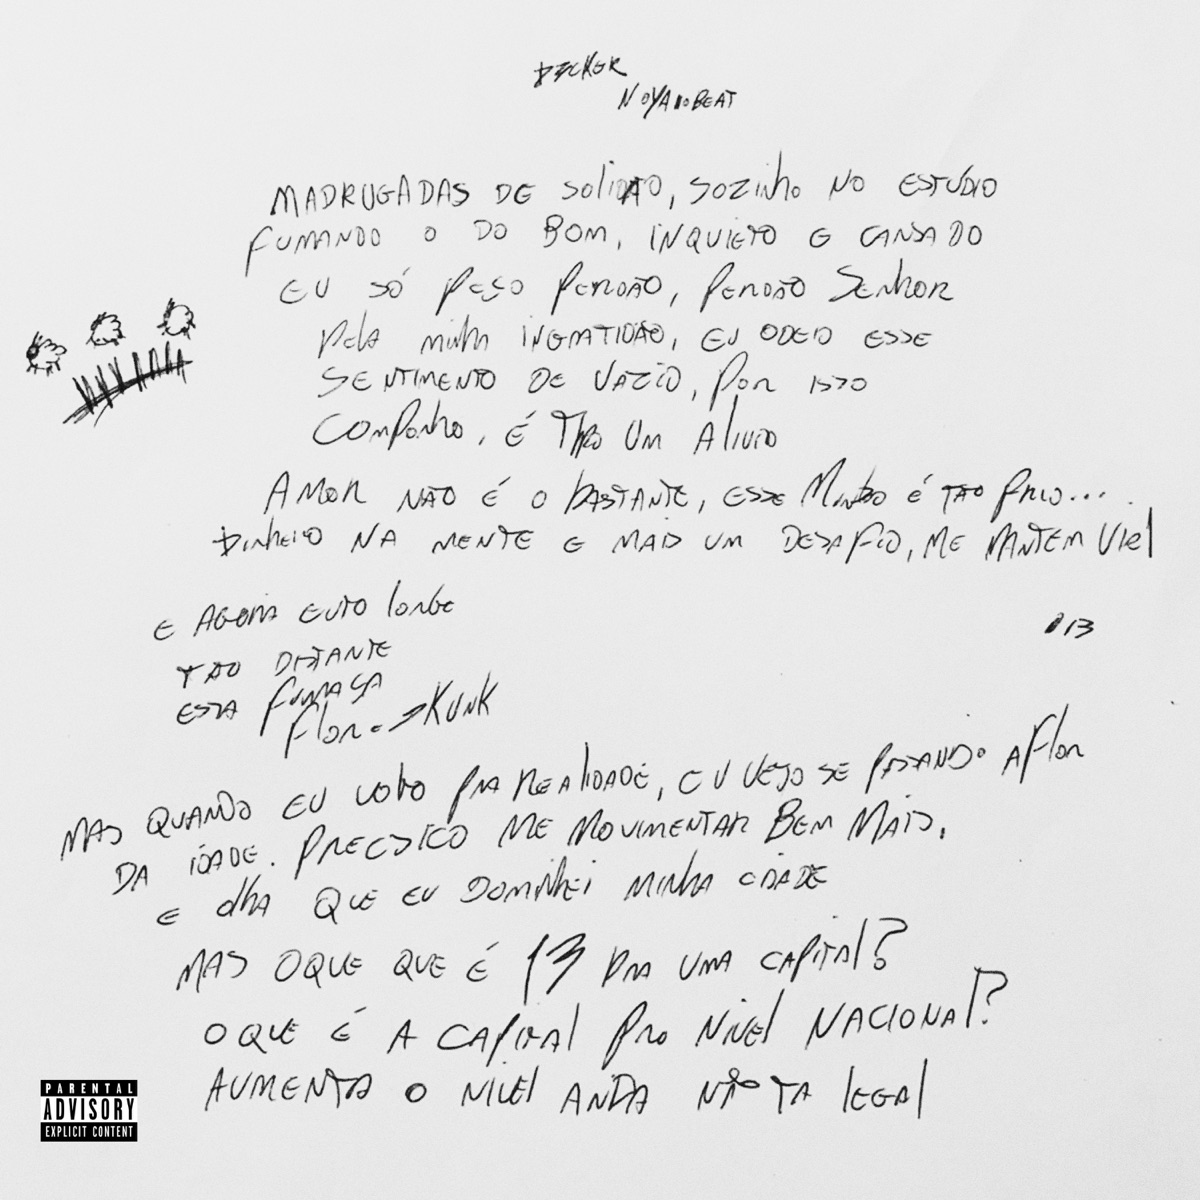 DECKER
NOYANOBEAT
MADRUGADAS DE SOLIDÃO, SOZINHO NO ESTÚDIO
FUMANDO O DO BOM, INQUIETO E CANSADO
EU SÓ PEÇO PERDÃO, PERDÃO SENHOR
PELA MINHA INGRATIDÃO, EU ODEIO ESSE
SENTIMENTO DE VAZIO, POR ISSO
COMPONHO, É TIPO UM ALIVIO
AMOR NÃO É O BASTANTE, ESSE MUNDO É TÃO FRIO...
DINHEIRO NA MENTE E MAIS UM DESAFIO, ME MANTEM VIEL
E AGORA EUTO LONGE
TÃO DISTANTE
ESSA FUMAÇA
FLOR SKUNK
013
MAS QUANDO EU VOLTO PRA REALIDADE, EU VEJO SE PASSANDO A FLOR
DA IDADE. PRECISO ME MOVIMENTAR BEM MAIS.
E OLHA QUE EU DOMINEI MINHA CIDADE
MAS OQUE QUE É 13 PRA UMA CAPITAL?
OQUE É A CAPITAL PRO NIVEL NACIONAL?
AUMENTA O NIVEL AINDA NÃO TA LEGAL
PARENTAL
ADVISORY
EXPLICIT CONTENT